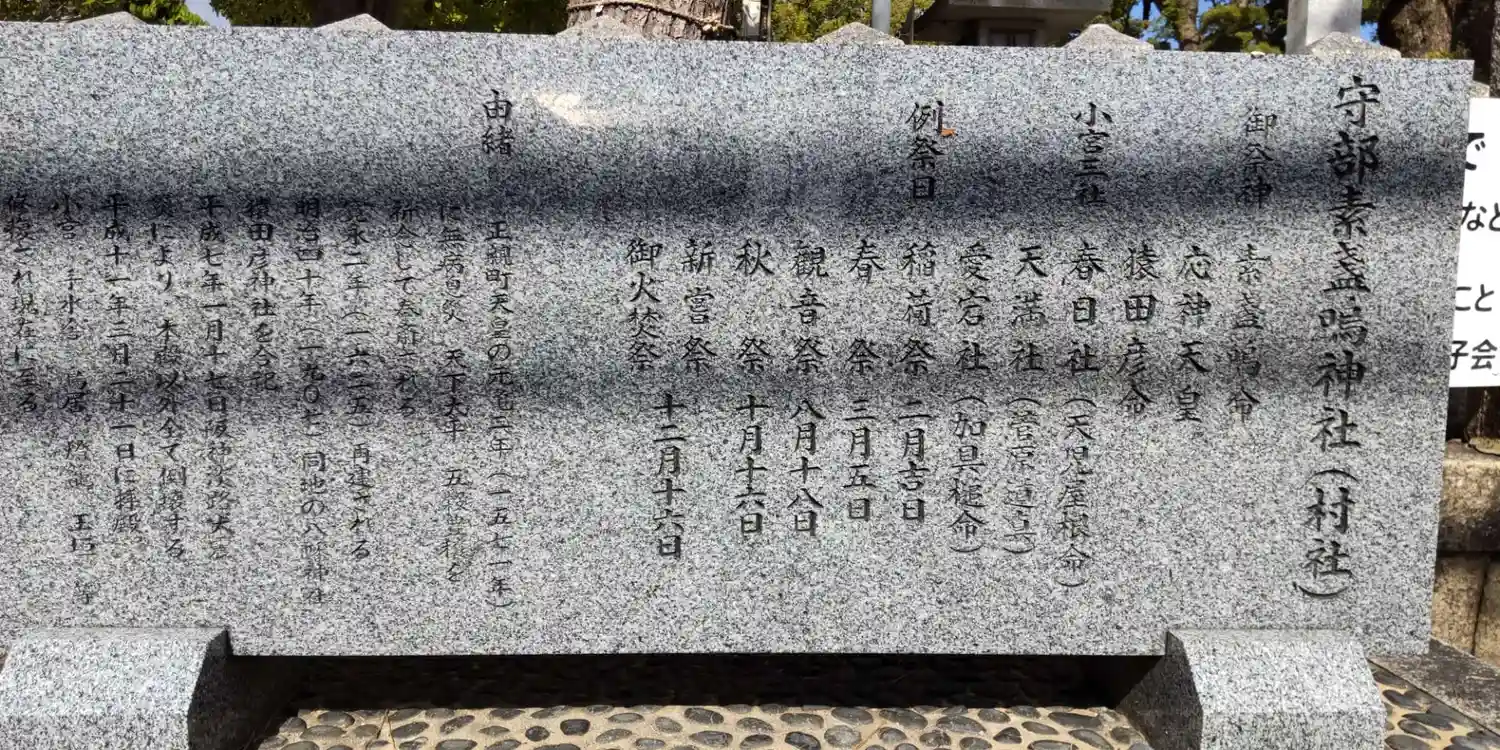 守部素盞嗚神社(村社)
御祭神 素盞嗚命
応神天皇
猿田彦命
小宮三社 春日社(天児屋根命)
天満社(菅原道真)
愛宕社(加具槌命)
例祭日 稲荷祭 二月吉日
春祭 三月五日
觀音祭 八月十八日
秋祭 十月十六日
新嘗祭
御火焚祭 十二月十六日
由緒 正親町天皇の元亀二年(一五七一年)
に無病息災 天下太平 五穀豊穣を
祈念して奉斎される
寛永二年(一六二五)再建される
明治四十年(一九〇七)同地の八幡神社
猿田彦神社を合祀
平成七年一月十七日阪神淡路大震
災により 本殿以外全て倒壊する
平成十一年二月二十一日に拝殿
小宮 手水舎 鳥居 燈篭 玉垣 等
修復され現在に至る
で
など
こと
子会